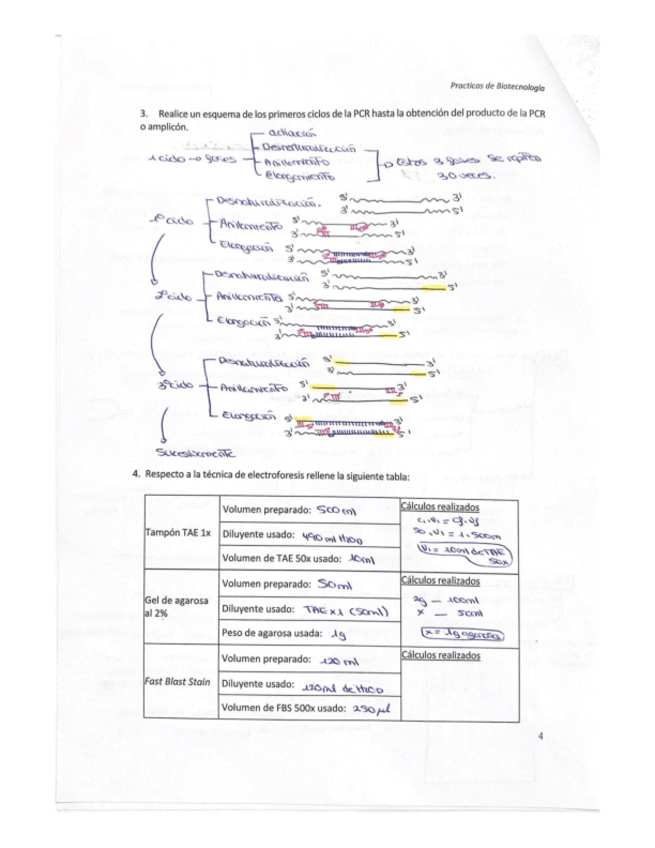 Practicas de Biotecnología
3. Realice un esquema de los primeros ciclos de la PCR hasta la obtención del producto de la PCR
o amplicón.
Desnaturalización
1 ciclo → fases Anillamiento Estas 3 fases se repiten
Elongamiento 30 veces.
Desnaturalización. 5' 3'
3' 5'
1º ciclo Anillamiento 5' 3'
3' 5'
Elongación 5' 3'
3' 5'
Desnaturalización 5' 3'
3' 5'
2º ciclo Anillamiento 5' 3'
3' 5'
Elongación 5' 3'
3' 5'
Desnaturalización 5' 3'
3' 5'
3º ciclo Anillamiento 5' 3'
3' 5'
Elongación 5' 3'
3' 5'
Sucesivamente
4. Respecto a la técnica de electroforesis rellene la siguiente tabla:
Tampón TAE 1x
Volumen preparado: 500 ml
Diluyente usado: 490 ml H2O
Volumen de TAE 50x usado: 10ml
Cálculos realizados
C1.V1 = Cf.Vf
50.V1 = 1.500m
V1 = 10ml de TAE
50x
Gel de agarosa
al 2%
Volumen preparado: 50ml
Diluyente usado: TAE x1 (50ml)
Peso de agarosa usada: 1g
Cálculos realizados
2g — 100ml
x — 50ml
x = 1g agarosa
Fast Blast Stain
Volumen preparado: 120 ml
Diluyente usado: 120ml de H2O
Volumen de FBS 500x usado: 250 µl
Cálculos realizados
4